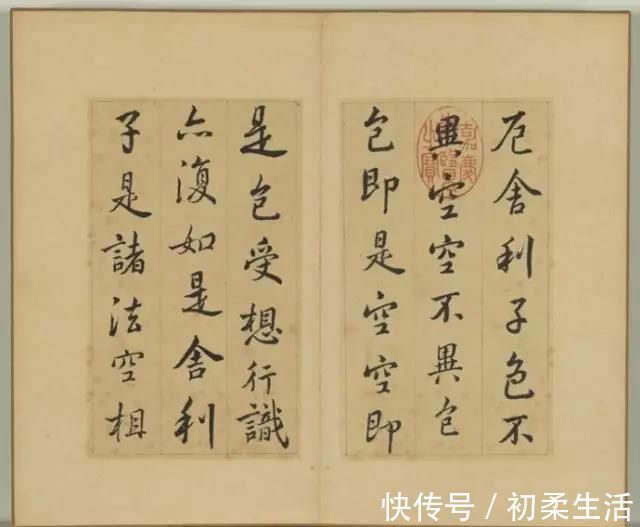 厄舍利子色不
異空空不異色
色即是空空即
是色受想行識
亦復如是舍利
子是諸法空相
嘉慶御覽之寶
快传号/初柔生活